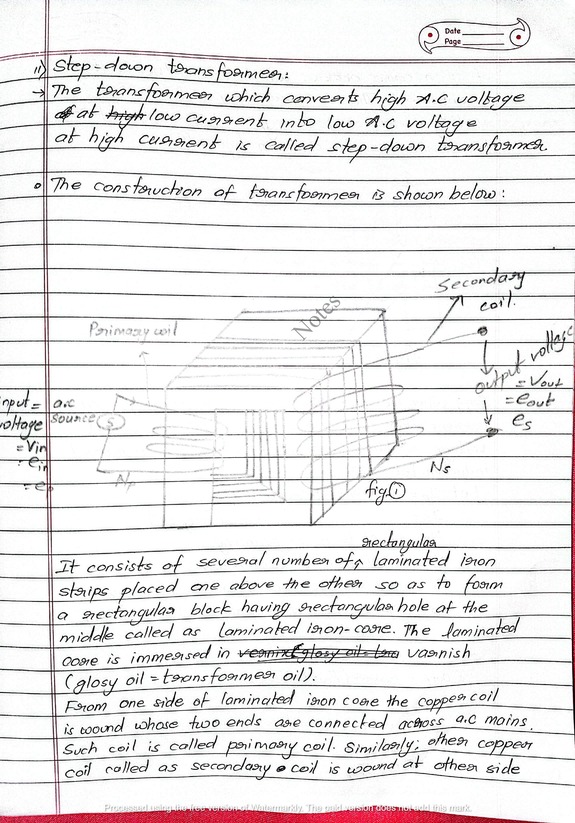 Date
Page
ii) Step-down transformer:
→ The transformer which converts high A.C voltage
at high low current into low A.C voltage
at high current is called step-down transformer.
• The construction of transformer is shown below:
Secondary
coil.
Notes
Primary coil
output voltage
= Vout
= eout
es
input = a.c
voltage source (s)
= Vin
= ein
= ep
Np
Ns
fig.①
rectangular
It consists of several number of ^ laminated iron
strips placed one above the other so as to form
a rectangular block having rectangular hole at the
middle called as laminated iron-core. The laminated
core is immersed in varnish
(glosy oil = transformer oil).
From one side of laminated iron core the copper coil
is wound whose two ends are connected across a.c mains.
Such coil is called primary coil. Similarly; other copper
coil called as secondary coil is wound at other side
Processed using the free version of Watermarkly. The paid version does not add this mark.